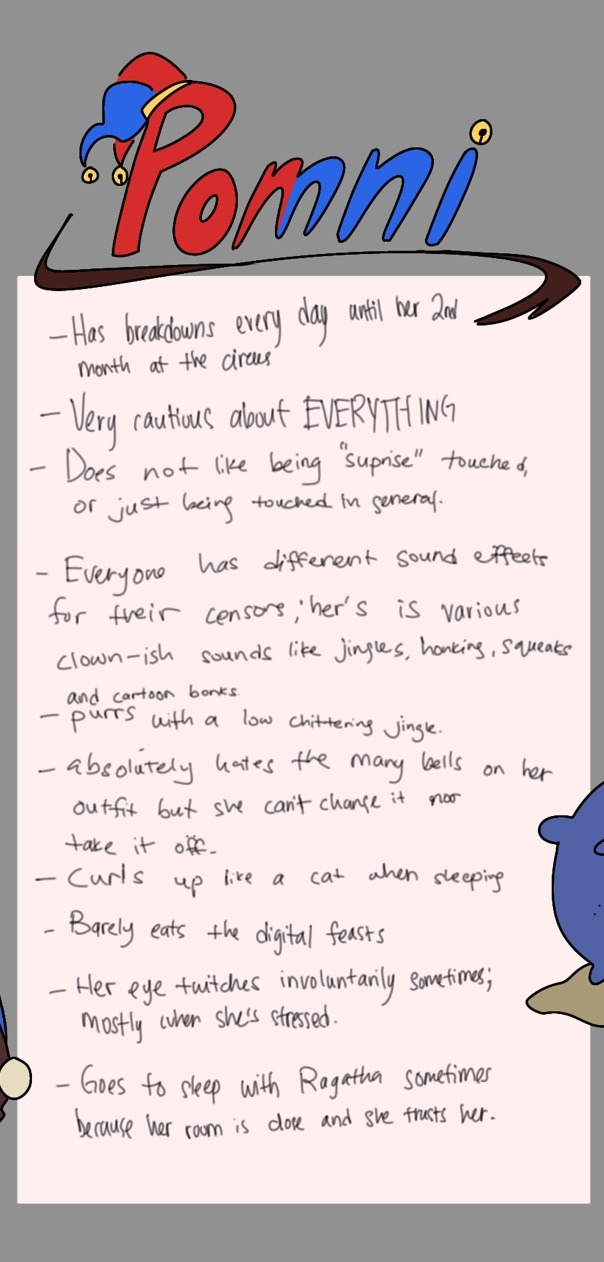 Pomni
- Has breakdowns every day until her 2nd
month at the circus
- Very cautious about EVERYTHING
- Does not like being "suprise" touched,
or just being touched in general.
- Everyone has different sound effects
for their censors; her's is various
clown-ish sounds like jingles, honking, squeaks
and cartoon bonks
- purrs with a low chittering jingle.
- absolutely hates the many bells on her
outfit but she can't change it nor
take it off.
- Curls up like a cat when sleeping
- Barely eats the digital feasts
- Her eye twitches involuntarily sometimes;
mostly when she's stressed.
- Goes to sleep with Ragatha sometimes
because her room is close and she trusts her.